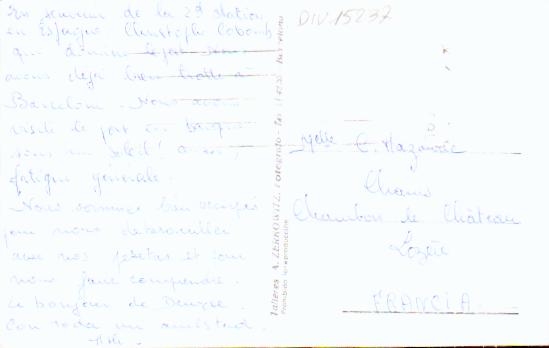 En souvenir de la 2e station
en Espagne Christophe Colomb
qui domine le port Nous
avons déjà bien trotté à
Barcelone. Nous avons
visité le port en barque
sous un soleil!
fatigue générale.
Nous sommes bien occupés
pour nous débrouiller
avec nos pesetas et pour
nous faire comprendre.
Le bonjour de Denyse.
Con toda mi amistad.
DIV.15237
Talleres A. ZERKOWITZ. FOTOGRAFO -
Prohibida la reproducción
Melle C. Mazaudic
Chams
Chambon le Château
Lozère
FRANCIA